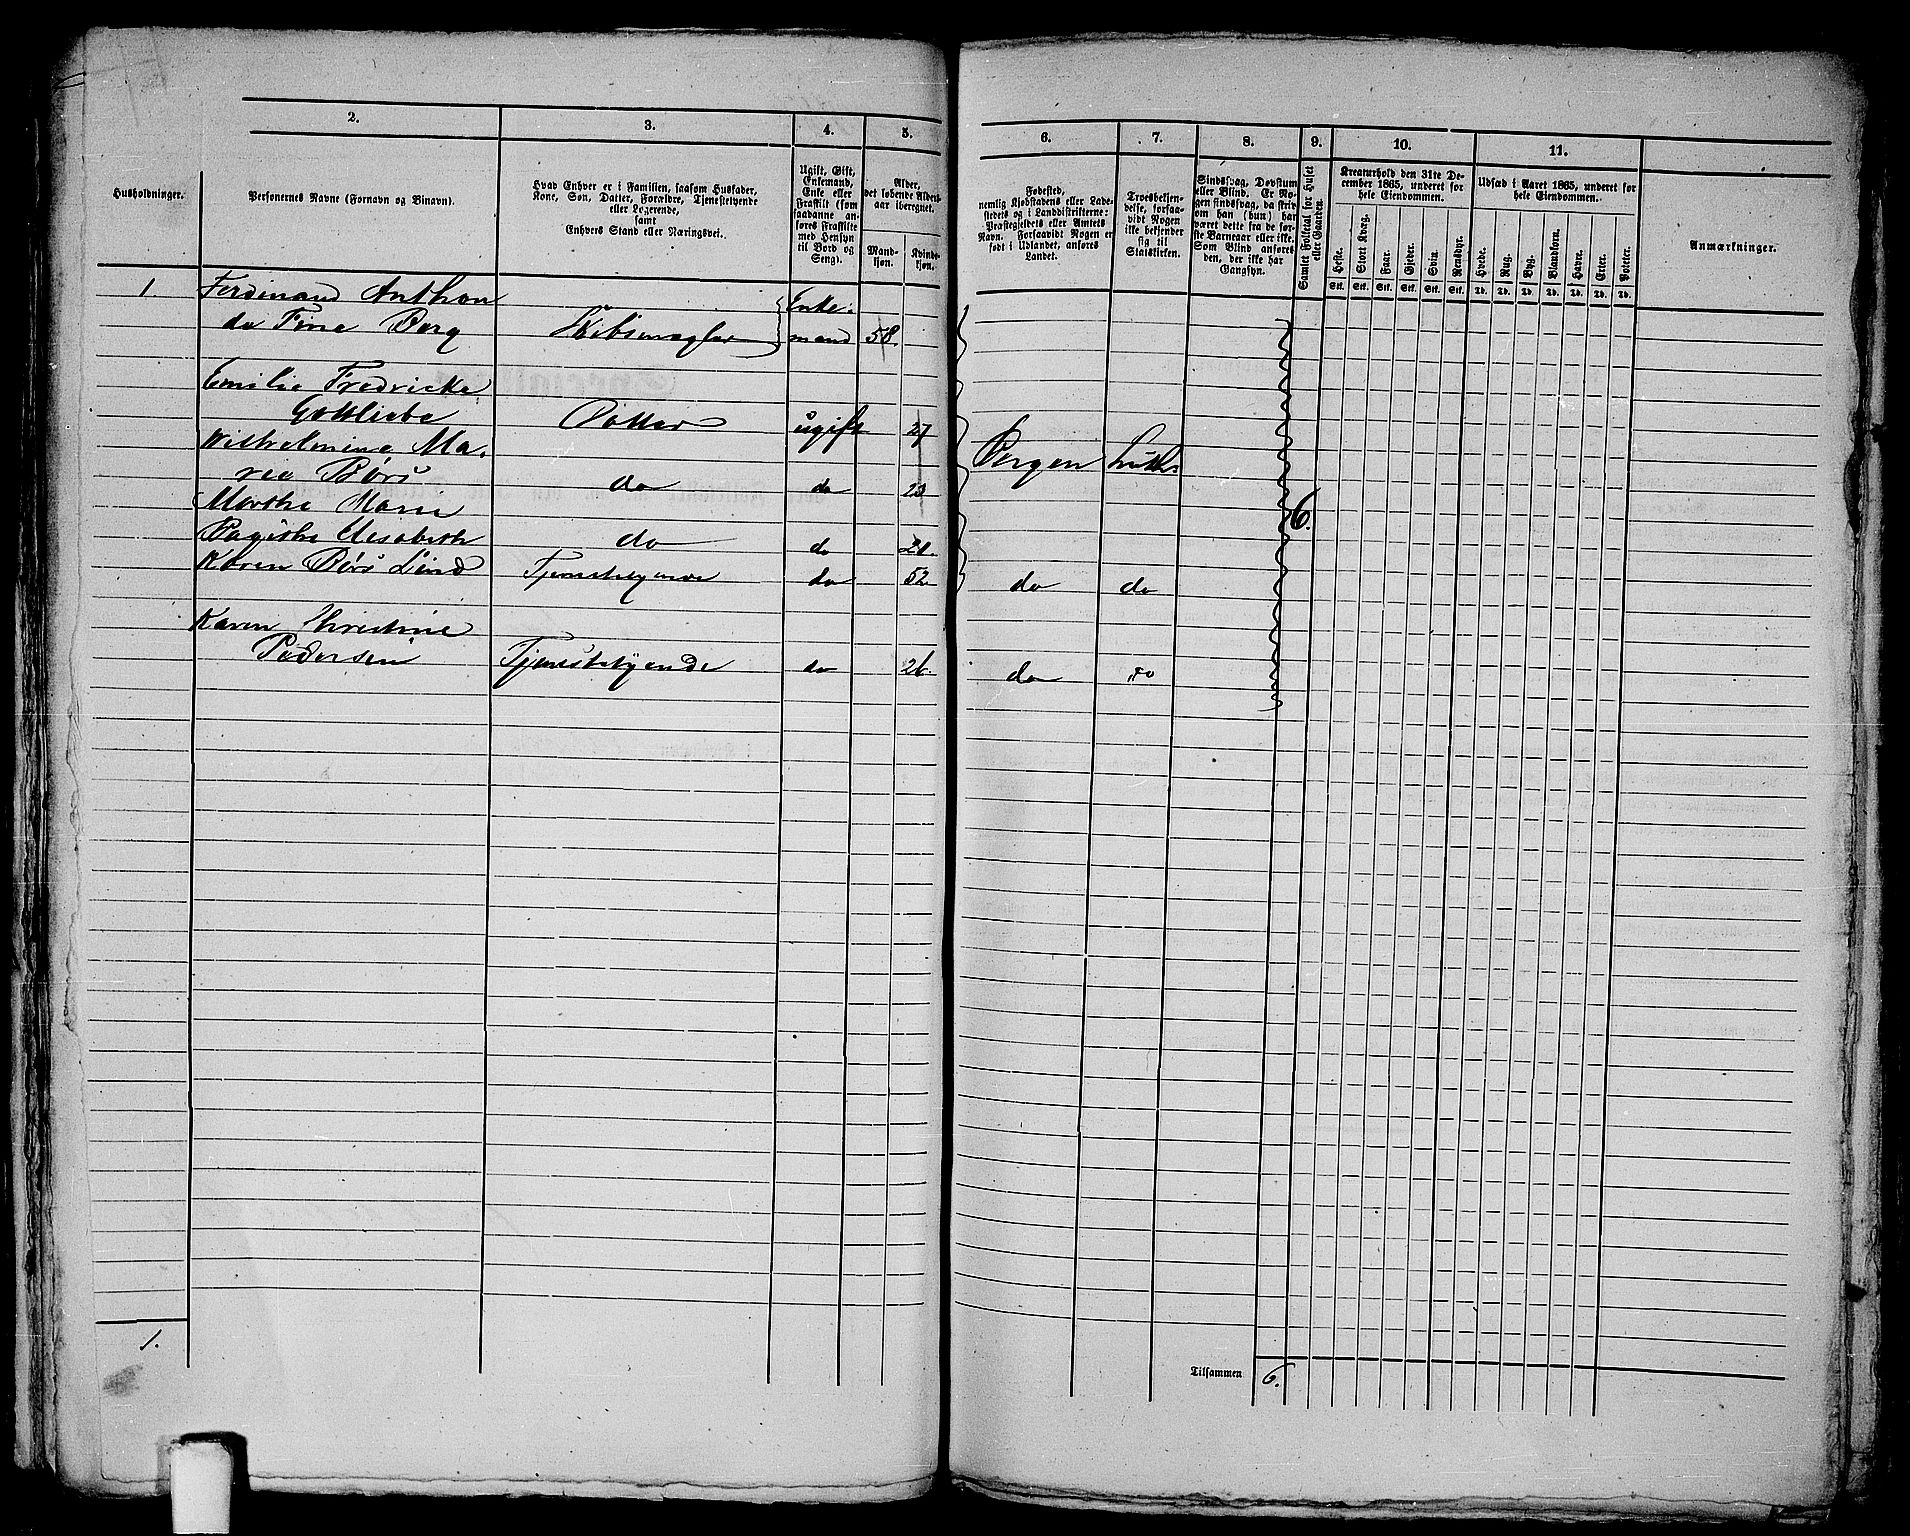 2.
3.
4.
5.
6.
7.
8.
9.
10.
11.
Husholdninger.
Personernes Navne (Fornavn og Binavn).
Hvad Enhver er i Familien, saasom Husfader,
Kone, Søn, Datter, Forældre, Tjenestetyende
eller Logerende,
samt
Enhvers Stand eller Næringsvei.
Ugift, Gift,
Enkemand,
Enke eller
Fraskilt (som
saadanne an-
føres Fraskilte
med Hensyn
til Bord og
Seng).
Alder,
det løbende Alders-
aar iberegnet.
Mand-
kjøn.
Kvinde-
kjøn.
Fødested,
nemlig Kjøbstadens eller Lade-
stedets og i Landdistrikterne:
Præstegjeldets eller Amtets
Navn. Forsaavidt Nogen er
født i Udlandet, anføres
Landet.
Troesbekjen-
delse, forsaa-
vidt Nogen
ikke bekjender
sig til
Statskirken.
Sindssvag, Døvstum
eller Blind. Er No-
gen sindssvag, da skriv
om han (hun) har
været dette fra de før-
ste Barneaar eller ikke.
Som Blind anføres
den, der ikke har
Gangsyn.
Samlet Folketal for Huset
eller Gaarden.
Kreaturhold den 31te De-
cember 1865, underet for
hele Eiendommen.
Heste.
Stort Kvæg.
Faar.
Gjeder.
Svin.
Rensdyr.
Stk. Stk. Stk. Stk. Stk. Stk.
Udsæd i Aaret 1865, underet for
hele Eiendommen.
Hvede.
Rug.
Byg.
Blandkorn.
Havre.
Erter.
Poteter.
Td. Td. Td. Td. Td. Td. Td.
Anmærkninger.
1. Ferdinand Anthon
de Fine Berg Skibsmægler Enke-
mand 58.
Emilie Fredrikke
Gottliebe Datter ugift 27
Wilhelmine Ma-
rie Børs do do 23 Bergen Luth.
Marthe Marie
Elisabeth do do 21. 6.
Karen Børs Lind Tjenestetyende do 52 do do
Karen Christine
Pedersen Tjenestetyende do 26. do do
1.
Tilsammen 6.